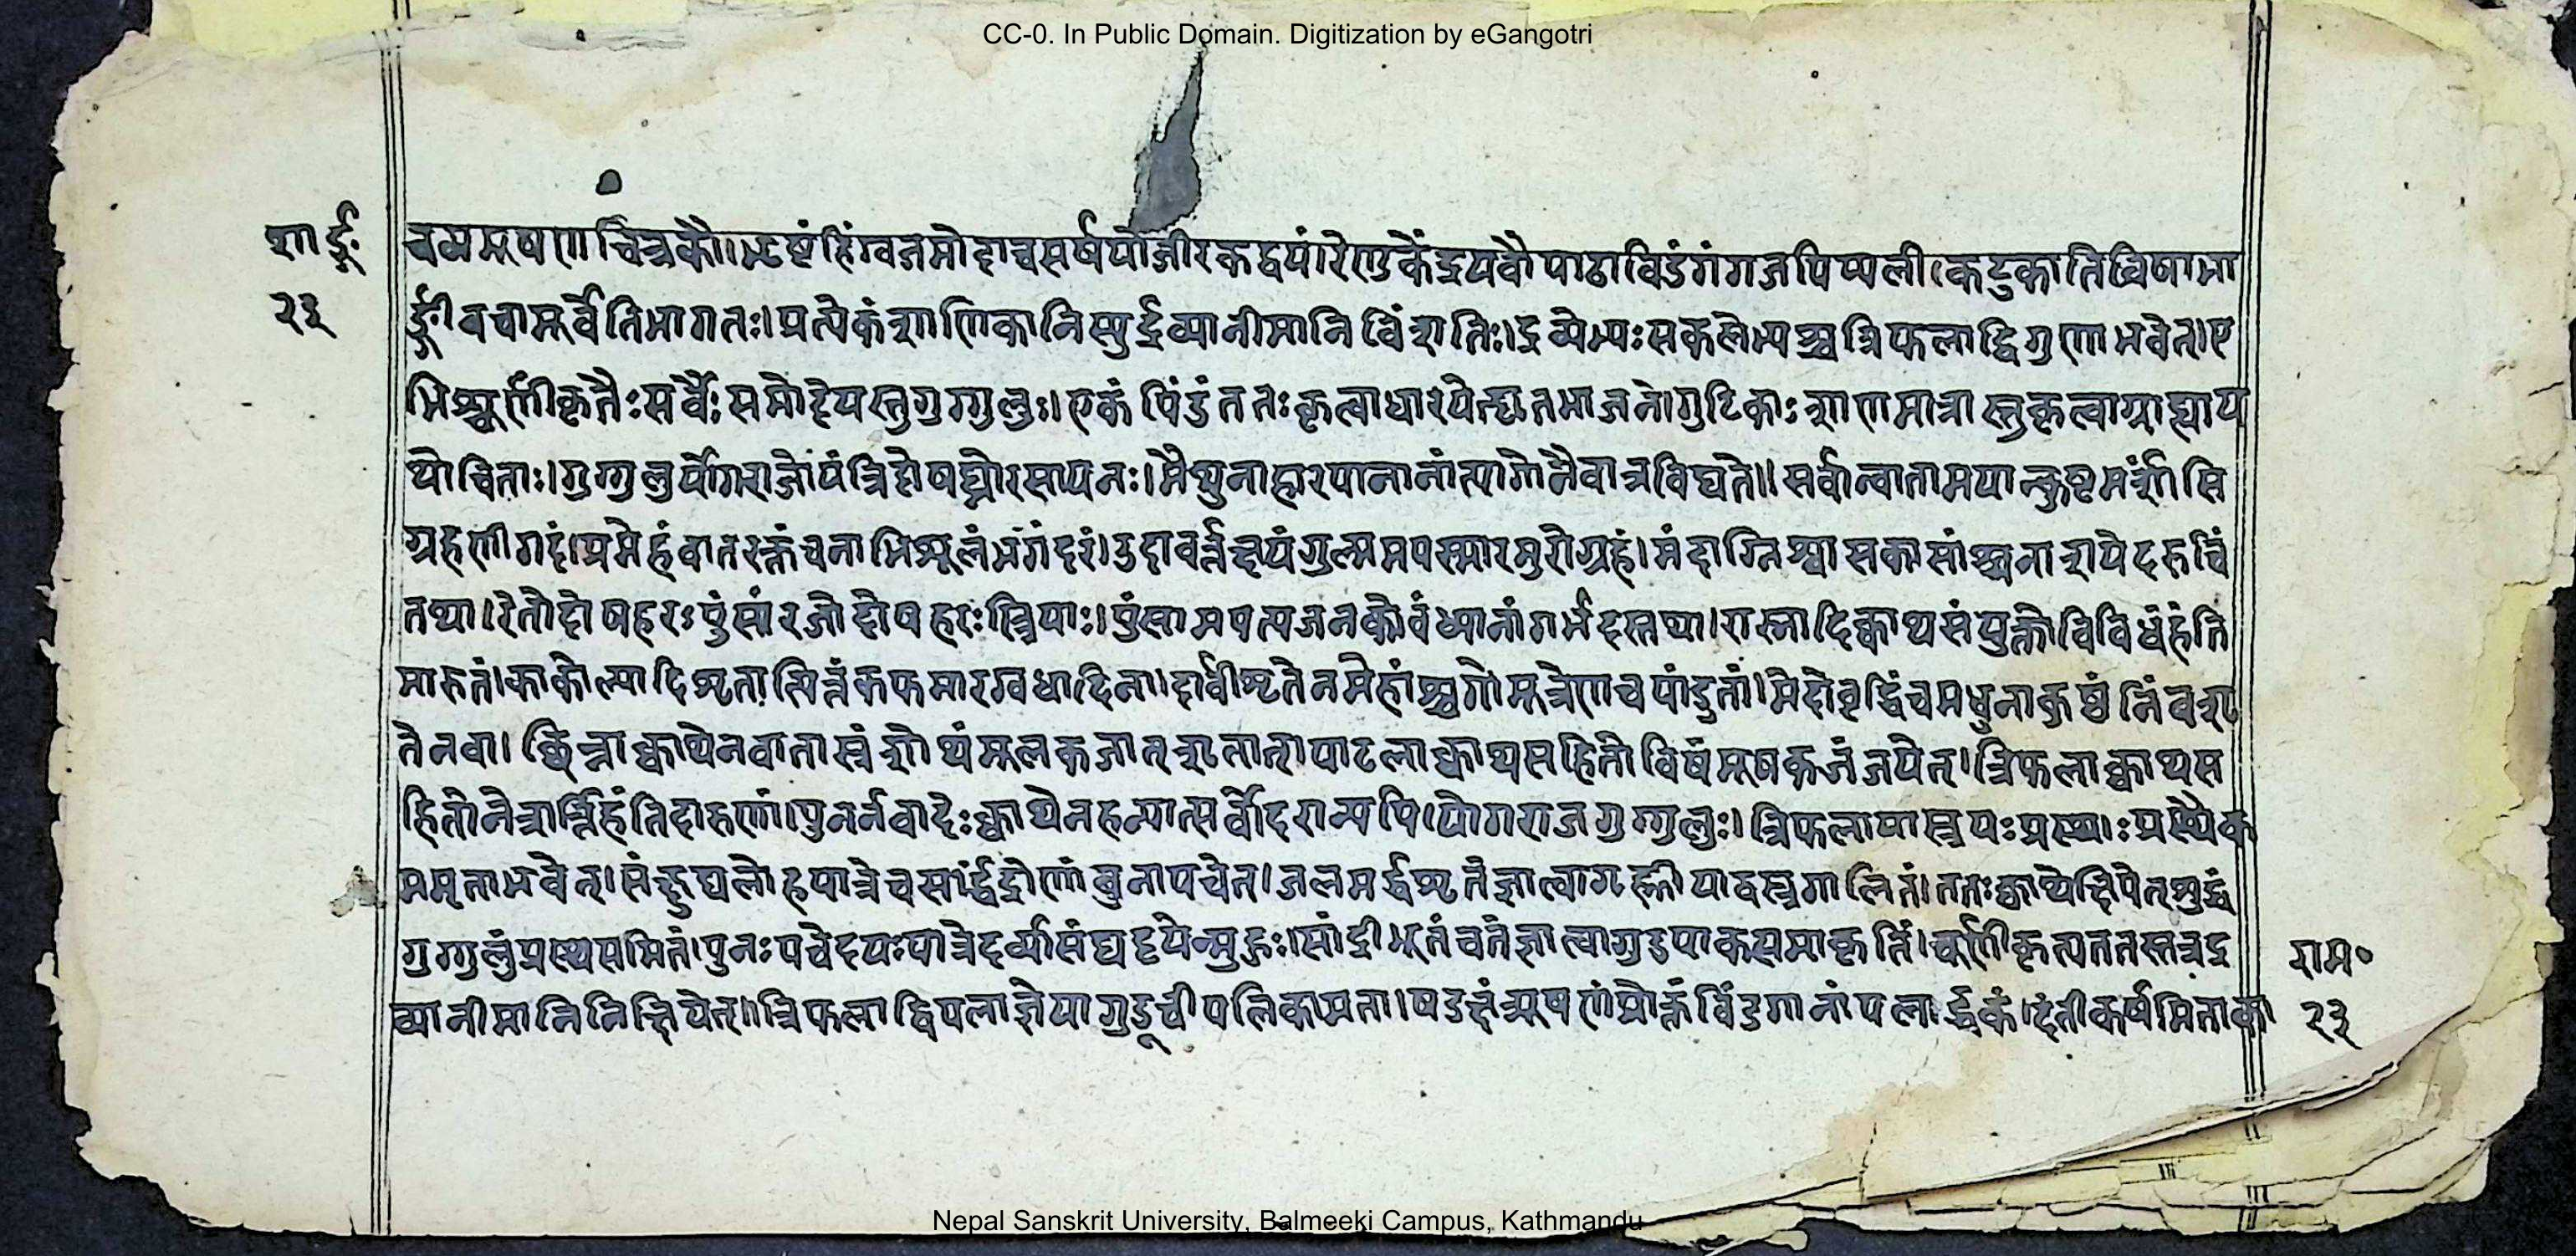 CC-0. In Public Domain. Digitization by eGangotri
शार्ङ्ग॰
२३
चव्यमूषणचित्रकौ।भृष्टंहिंग्वजमोदाचसर्षपोजीरकद्वयं।रेणुकेंद्रयवौपाठाविडंगंगजपिप्पली।कटुकातिविषाभा
र्ङ्गीवचामूर्वेतिभागतः।प्रत्येकंशाणिकानिस्युर्द्रव्यानीमानिविंशतिः।द्रव्येभ्यःसकलेभ्यश्चत्रिफलाद्विगुणाभवेत्।ए
भिश्चूर्णीकृतैःसर्वैःसमोदेयस्तुगुग्गुलुः।एकंपिंडंततःकृत्वाधारयेद्घृतभाजने।गुटिकाःशाणमात्रास्तुकृत्वाग्राह्याय
थोचिताः।गुग्गुलुर्योगराजोयंत्रिदोषघ्नोरसायनः।मैथुनाहारपानानांत्यागोनैवात्रविद्यते॥सर्वान्वातामयान्कुष्टमर्शांसि
ग्रहणीगदं।प्रमेहंवातरक्तंचनाभिशूलंभगंदरं।उदावर्त्तंक्षयंगुल्ममपस्मारमुरोग्रहं।मंदाग्निश्वासकासांश्चनाशयेदरुचिं
तथा।रेतोदोषहरःपुंसांरजोदोषहरःस्त्रियाः।पुंसामपत्यजनकोवंध्यानांगर्भदस्तथा।रास्नादिक्वाथसंयुक्तोविविधंहंति
मारुतं।काकोल्यादिशृतात्पित्तंकफमारग्वधादिना।दार्वीशृतेनमेहांश्चगोमूत्रेणचपांडुतां।मेदोवृद्धिंचमधुनाकुष्ठंनिंबशृ
तेनवा।छिन्नाक्वाथेनवातास्रंशोथंमूलकजात्शृतात्।पाटलाक्वाथसहितोविषंमूषकजंजयेत्।त्रिफलाक्वाथस
हितोनेत्रार्त्तिंहंतिदारुणां।पुनर्नवादेःक्वाथेनहन्यात्सर्वोदराण्यपि।योगराजगुग्गुलुः।त्रिफलायास्त्रयःप्रस्थाःप्रस्थैक
ममृताभवेत्।संकुट्यलोहपात्रेचसार्द्धद्रोणांबुनापचेत्।जलमर्द्धशृतंज्ञात्वागृह्णीयाद्वस्त्रगालितं।ततःक्वाथेक्षिपेत्शुद्धं
गुग्गुलुंप्रस्थसमितं।पुनःपचेदयःपात्रेदर्व्यासंघट्टयेन्मुहुः।सांद्रीभूतंचतंज्ञात्वागुडपाकसमाकृतिं।चूर्णीकृत्यततस्तत्रद्र
व्यानीमानिनिक्षिपेत्॥त्रिफलाद्विपलाज्ञेयागुडूचीपलिकामता।षडक्षंत्र्यूषणंप्रोक्तंविंडगानांपलार्द्धकं।दंतीकर्षमिताका
राम॰
२३
Nepal Sanskrit University, Balmeeki Campus, Kathmandu